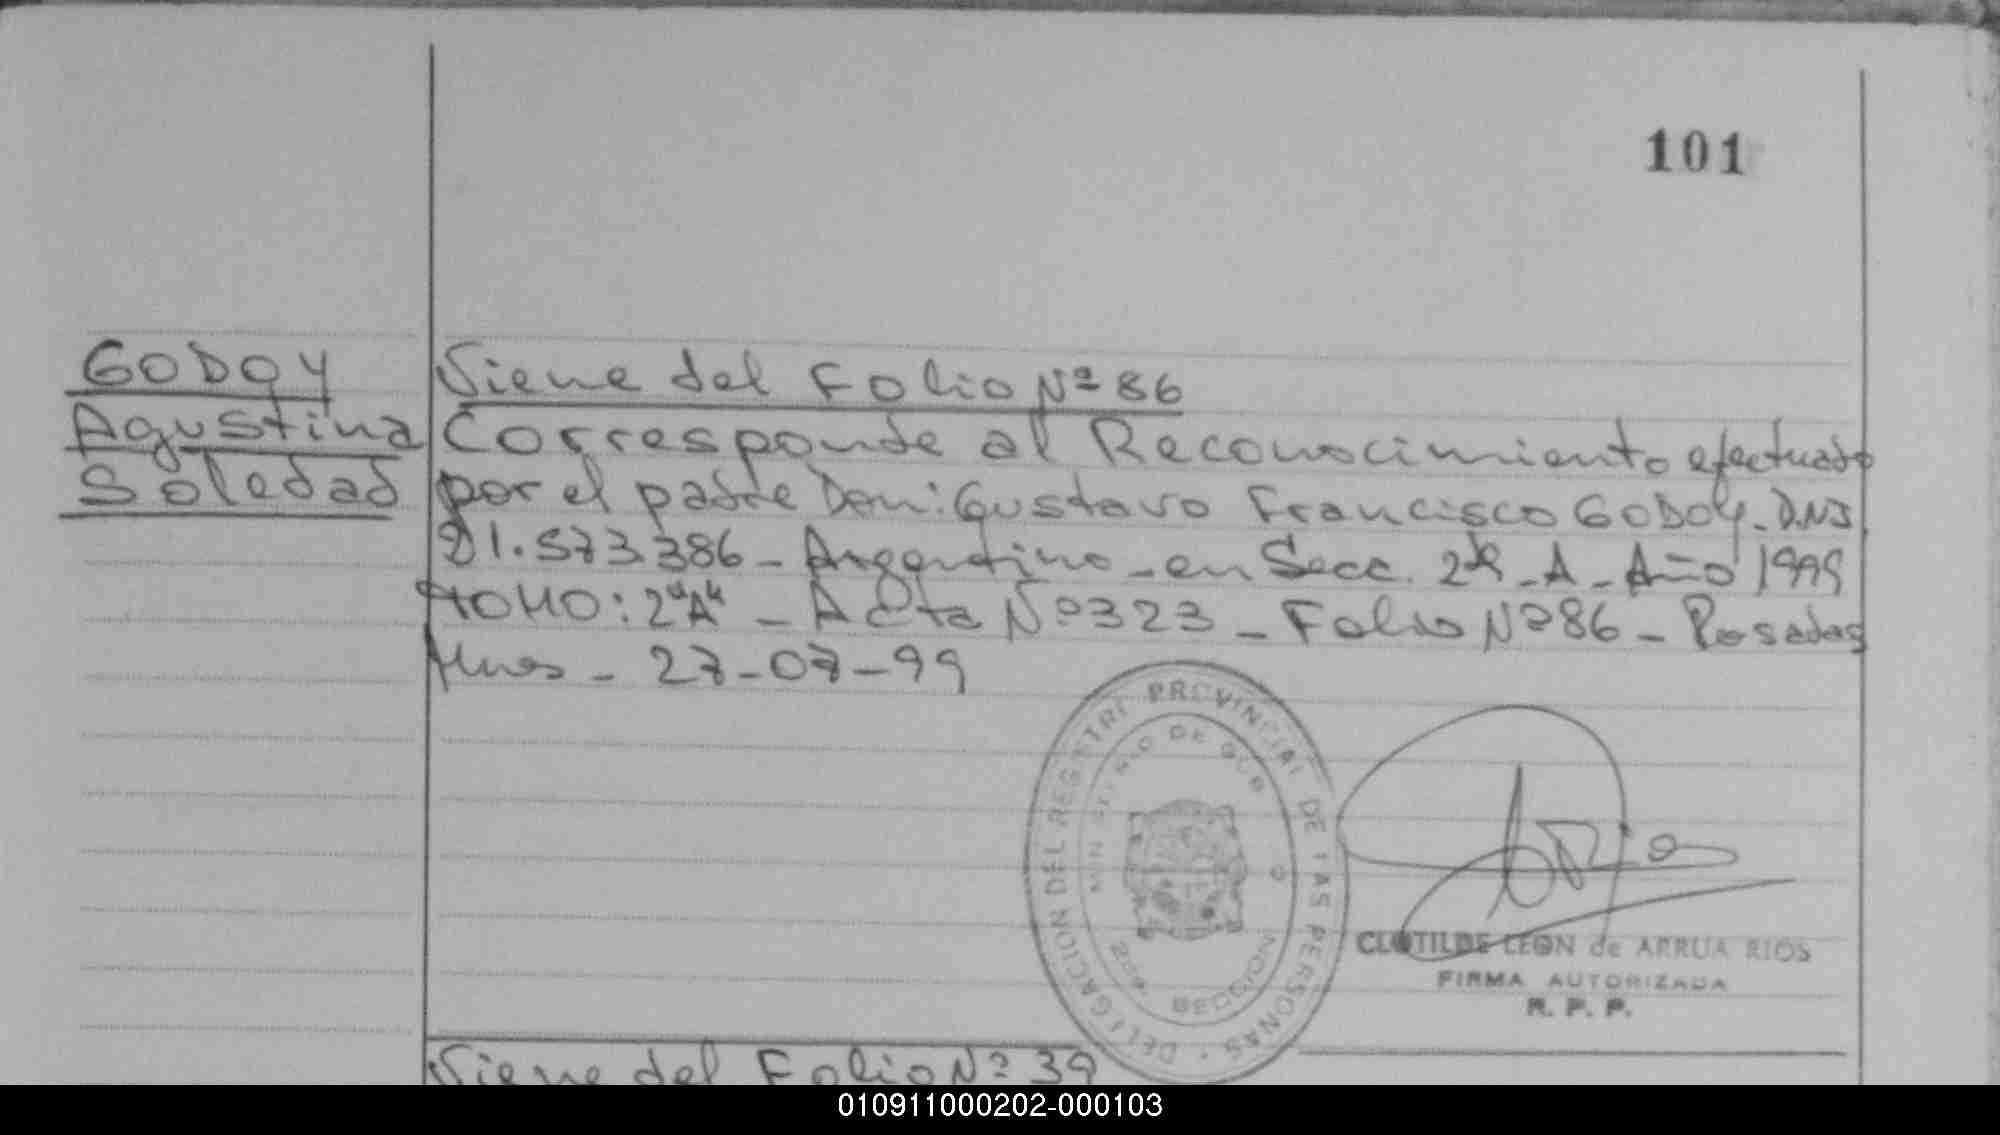 101
GODOY
Agustina
Soledad
Viene del Folio Nº 86
Corresponde al Reconocimiento efectuado
por el padre Don: Gustavo Francisco GODOY - D.N.I.
21.573.386 - Argentino - en Secc. 2da - A - Año 1999
TOMO: 2"A" - Acta Nº 323 - Folio Nº 86 - Posadas
Mnes - 27-07-99
DELEGACION DEL REGISTRO PROVINCIAL DE LAS PERSONAS
MINISTERIO DE GOB
2da. SECCION
CLOTILDE LEON de ARRUA RIOS
FIRMA AUTORIZADA
R. P. P.
Viene del Folio Nº 39
010911000202-000103